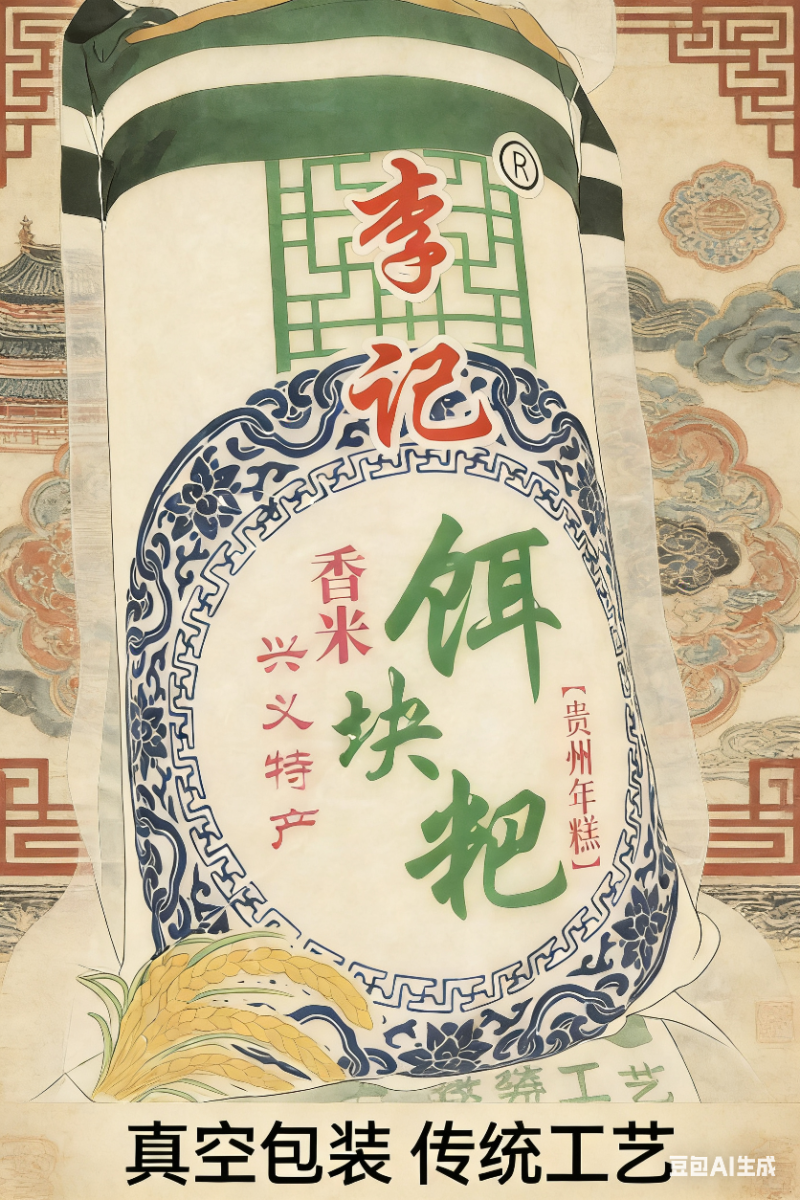 ®
李记
饵块粑
【贵州年糕】
香米
兴义特产
传统工艺
真空包装 传统工艺
豆包AI生成